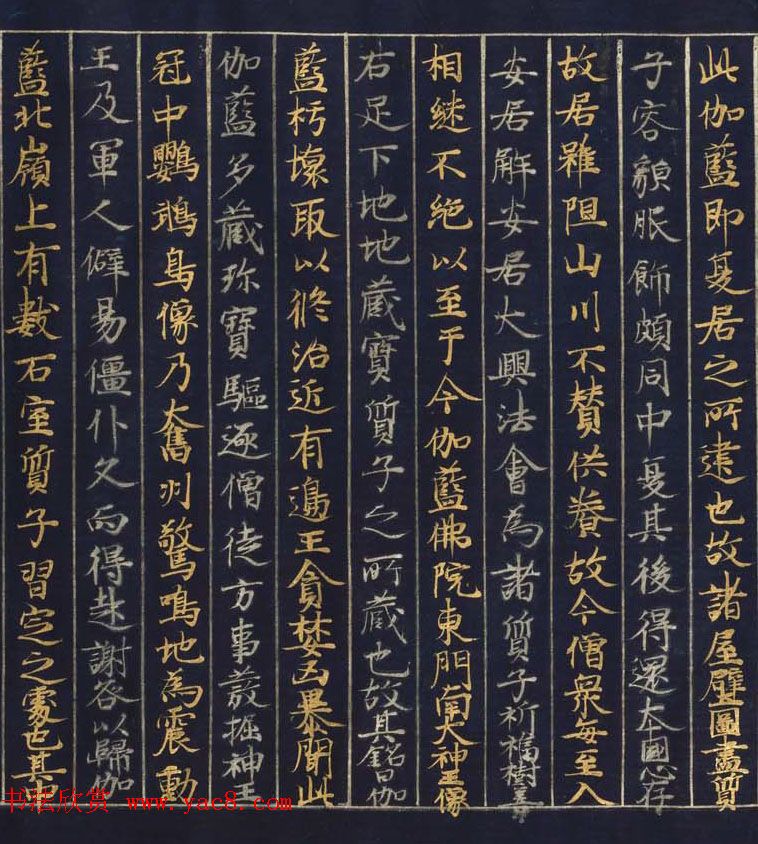 此伽藍即夏居之所建也故諸屋壁圖畫質
子容貌服飾頗同中夏其後得還本國心存
故居雖阻山川不賛供養故今僧眾每至入
安居解安居大興法會為諸質子祈福樹善
相継不絕以至于今伽藍佛院東門南大神王像
右足下地地蔵寶質子之所蔵也故其銘曰伽
藍朽壞取以修治近有邊王貪婪凶暴聞此
伽藍多蔵珎寶驅逐僧徒方事發掘神王
冠中鸚鵡鳥像乃奮羽驚鳴地為震動
王及軍人僻易僵仆久而得起謝咎以歸伽
藍北嶺上有數石室質子習定之處也其
书法欣赏 www.yac8.com